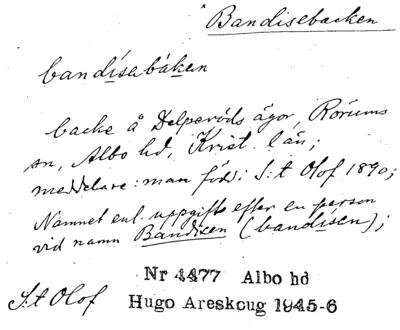 * Bandisebacken
bandísabákєn
backe å Delperöds ägor, Rörums
sn, Albo hd, Krist. län;
meddelare: man född i S:t Olof 1890;
Namnet enl. uppgift efter en person
vid namn Bandicen (bandísen);
Nr 4477 Albo hd
S:t Olof Hugo Areskoug 1945-6